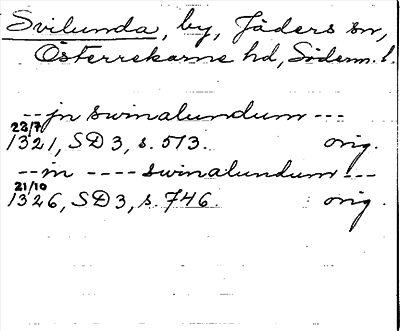 Svilunda, by, Jäders sn,
Österrekarne hd, Söderm. l.
--jn swinalundum---
23/7
1321, SD 3, s. 513. orig.
--in ----swinalundum---
21/10
1326, SD 3, s. 746. orig.